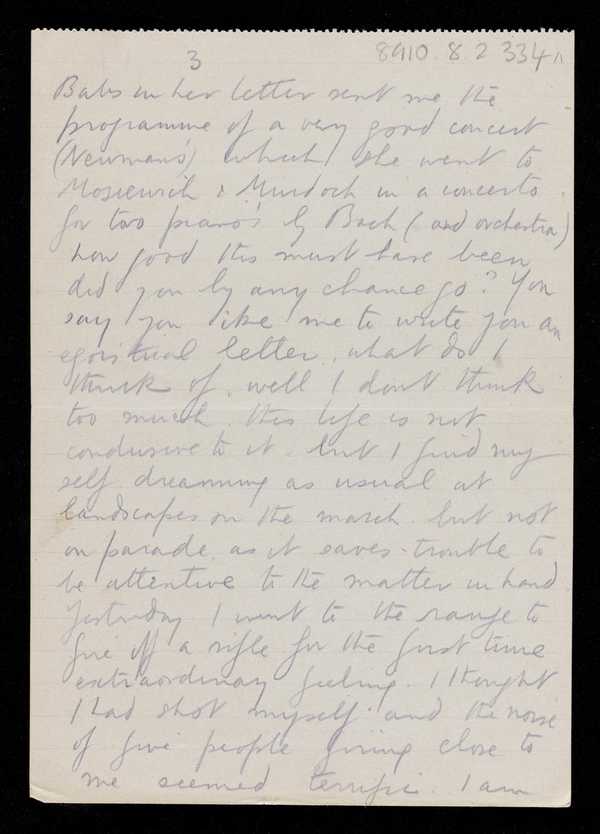 3
8910.8.2 334
Babs in her letter sent me the
programme of a very good concert
(Newman's) which she went to
Mosiewich & Murdoch in a concerto
for two piano's by Bach (and orchestra)
how good this must have been
did you by any chance go? You
say you like me to write you an
egoistical letter, what do I
think of, well I don't think
too much. this life is not
condusive to it. but I find my
self dreaming as usual at
landscapes on the march. but not
on parade, as it saves trouble to
be attentive to the matter in hand.
Yesterday I went to the range to
fire off a rifle for the first time
extraordinary feeling. I thought
I had shot myself. and the noise
of five people firing close to
me seemed terrific. I am